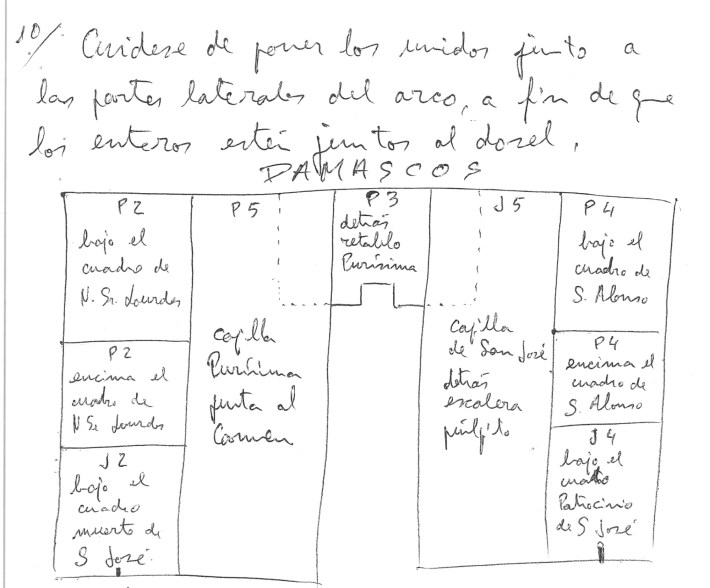 10/ Cuidese de poner los unidos junto a
las partes laterales del arco, a fin de que
los enteros estén juntos al dosel.
DAMASCOS
P2
bajo el
cuadro de
N. Sr. Lourdes
P5
P3
detrás
retablo
Purísima
J5
P4
bajo el
cuadro de
S. Alonso
P2
encima el
cuadro de
N Sr Lourdes
capilla
Purísima
junta al
Carmen
capilla
de San José
detrás
escalera
púlpito
P4
encima el
cuadro de
S. Alonso
J2
bajo el
cuadro
muerto de
S José
J4
bajo el
cuadro
Patrocinio
de S José